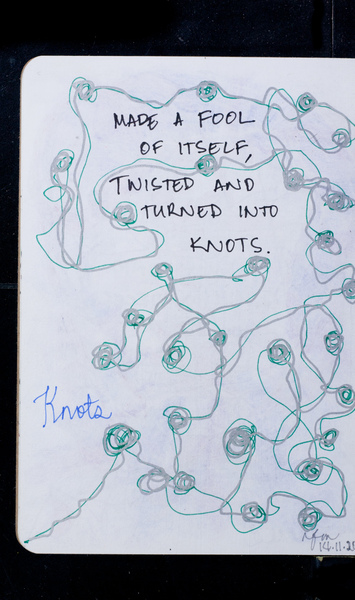 MADE A FOOL
OF ITSELF,
TWISTED AND
TURNED INTO
KNOTS.
Knots